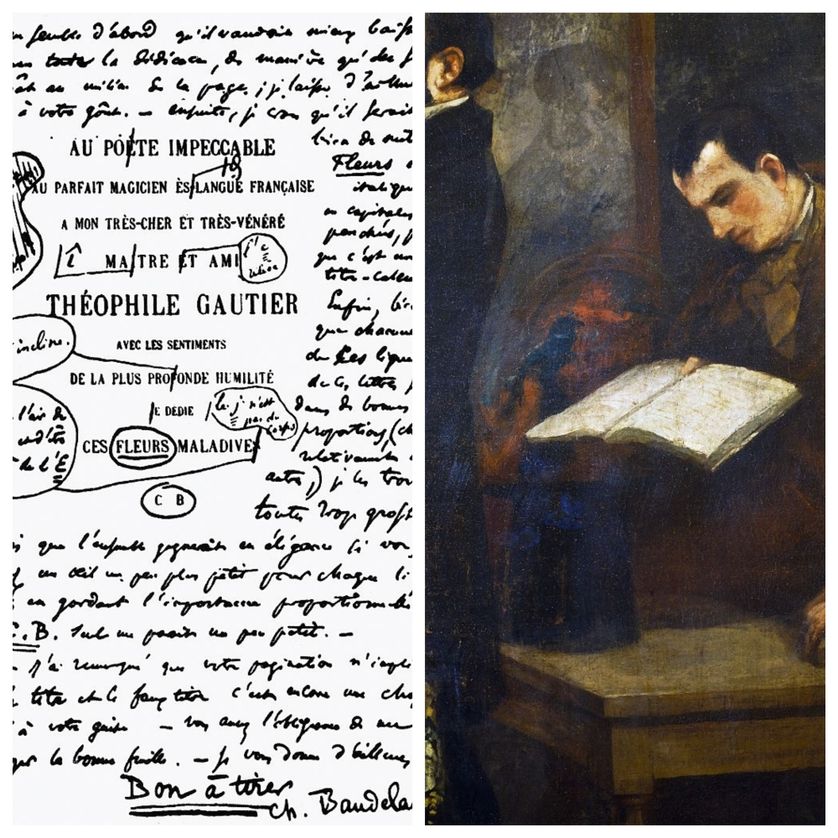 semble d'abord qu'il vaudrait mieux baiss
toute la dédicace, de manière qu'elle
milieu de la page; je laisse d'ailleurs
à votre goût. — ensuite, je crois qu'il serait
bien de
AU POËTE IMPECCABLE
Fleurs
AU PARFAIT MAGICIEN ÈS LANGUE FRANÇAISE
italique
en capitales
A MON TRÈS-CHER ET TRÈS-VÉNÉRÉ
penchées,
î MA TRE ET AMI
que c'est un
titre-
THÉOPHILE GAUTIER
Enfin,
que chacune
incline.
AVEC LES SENTIMENTS
de ces lignes
DE LA PLUS PROFONDE HUMILITÉ
de ces lettres
JE DEDIE
le j n'est pas du corps
dans de bonnes
l'air de
proportions
CES FLEURS MALADIVES
de l'E
relativement
autres) je les trou
C B
toutes trop gross
que l'ensemble gagnerait en élégance si vou
un œil un peu plus petit pour chaque li
en gardant l'importance proportionnelle
C.B. seul me paraît un peu petit. —
J'ai remarqué que votre pagination n'
titre et le faux titre c'est encore une cho
à votre guise — vous avez l'obligeance de
la bonne feuille. — Je vous donne d'ailleurs
Bon à tirer
Ch. Baudela